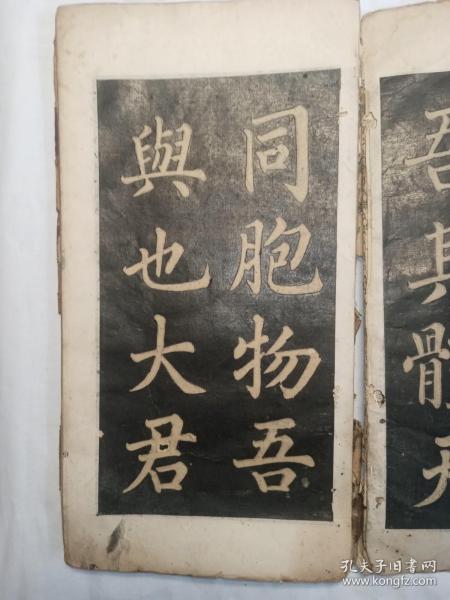 吾其體天
同胞物吾
與也大君
孔夫子旧书网
www.kongfz.com